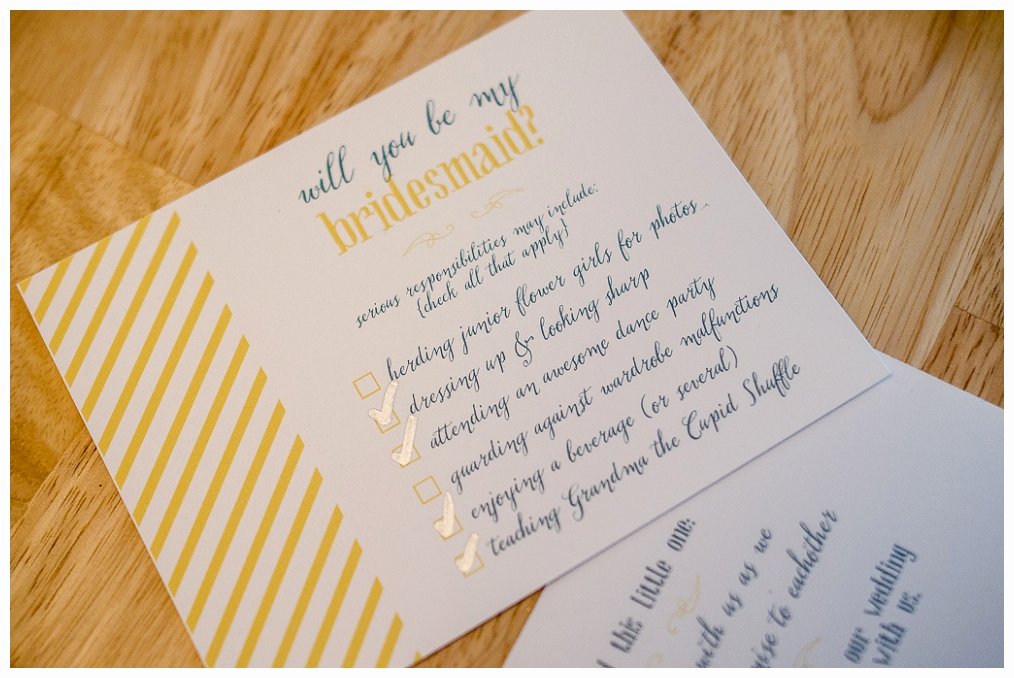 will you be my
bridesmaid?
serious responsibilities may include:
{check all that apply}
herding junior flower girls for photos
dressing up & looking sharp
attending an awesome dance party
guarding against wardrobe malfunctions
enjoying a beverage (or several)
teaching Grandma the Cupid Shuffle
this little one:
with us as we
to eachother
our wedding
with us.